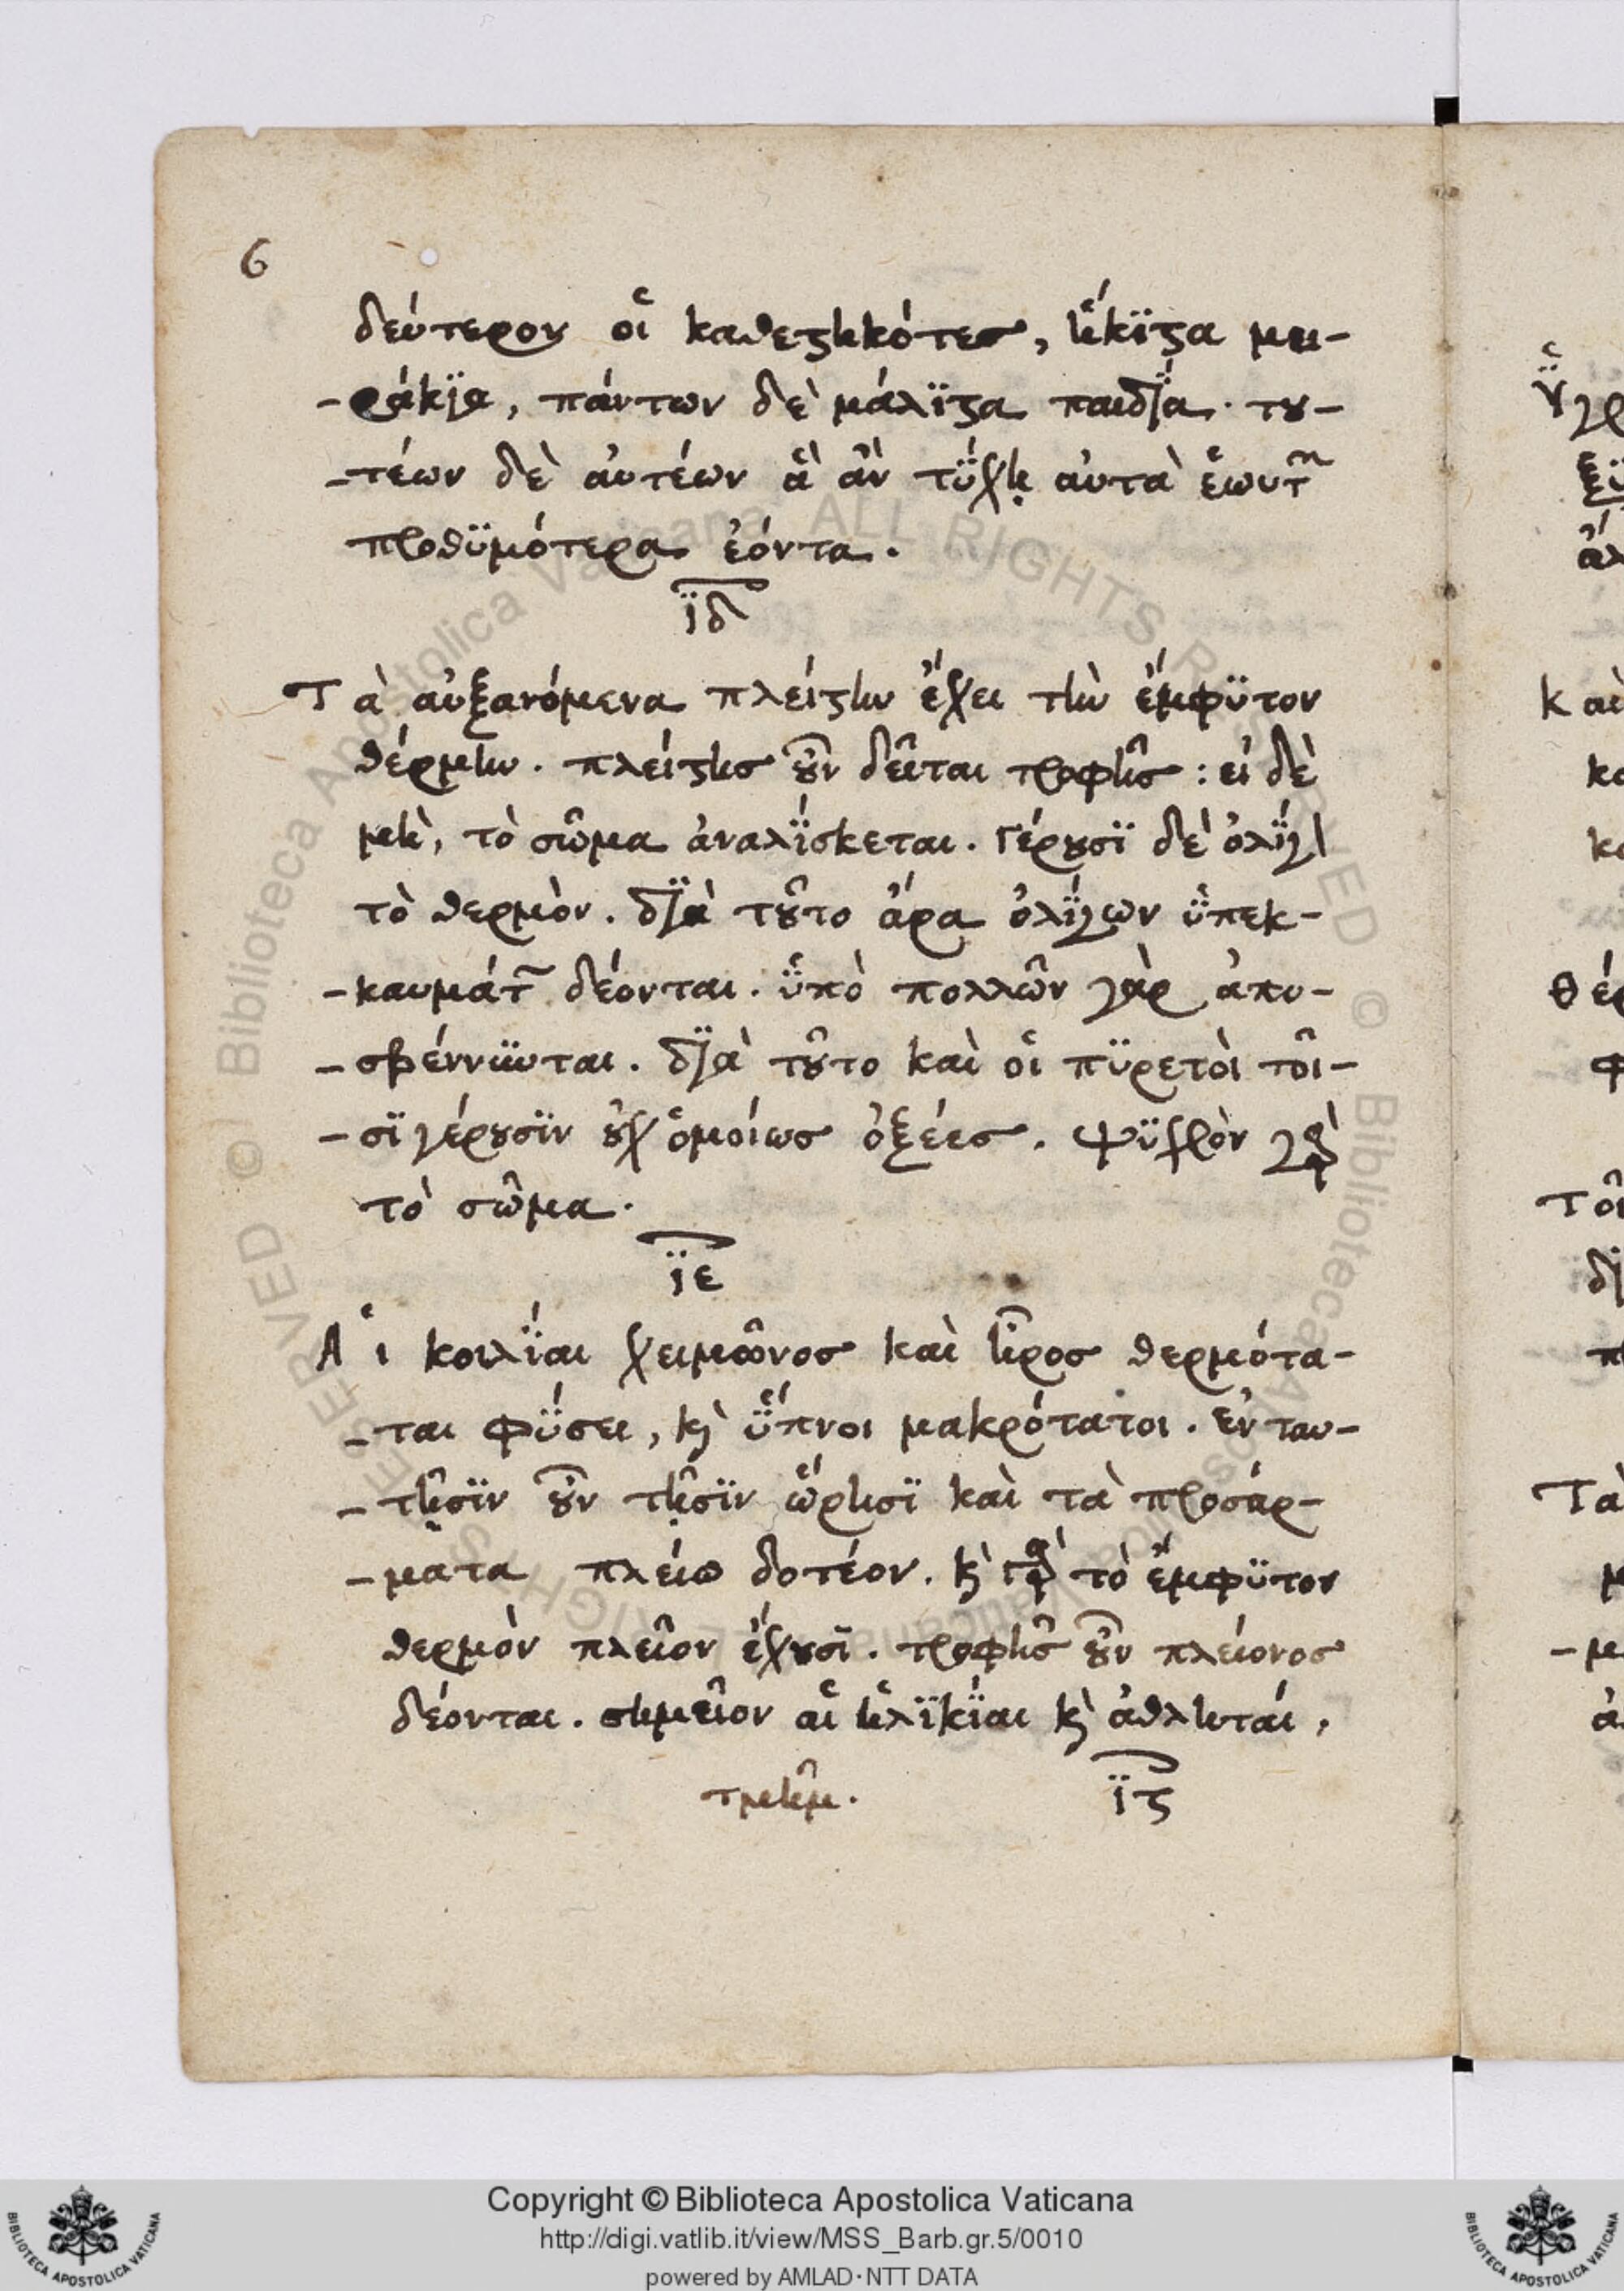 6
δεύτερον οἱ καθεϛηκότες, ἥκϊϛα μει-
-ράκϊα, πάντων δὲ μάλϊϛα παιδΐα. του-
-τέων δὲ αὐτέων ἃ ἂν τΰχῃ αὐτὰ ἑωυτῶν
προθϋμότερα ἐόντα.
ϊδ
Τὰ αὐξανόμενα πλείϛην ἔχει τὴν ἔμφϋτον
θέρμην. πλείϛης οὖν δεῖται τροφῆς : εἰ δὲ
μὴ, τὸ σῶμα ἀναλΐσκεται. Γέρουσϊ δὲ ὀλΐγ
τὸ θερμὸν. δϊὰ τοῦτο ἄρα ὀλΐγων ὑπεκ-
-καυμάτων δέονται. ὑπὸ πολλῶν γὰρ ἀπο-
-σβέννϋνται. δϊὰ τοῦτο καὶ οἱ πϋρετὸι τοῖ-
-σϊ γέρουσϊν οὐχ ὁμοίως ὀξέες. ψϋχρὸν γὰρ
τὸ σῶμα.
ϊε
Αἱ κοιλΐαι χειμῶνος καὶ ἦρος θερμότα-
-ται φΰσει, κὶ ὕπνοι μακρότατοι. ἐν ταυ-
-τῇσϊν οὖν τῇσϊν ὥρησϊ καὶ τὰ προσάρ-
-ματα πλείω δοτέον. κὶ γὰρ τὸ ἔμφϋτον
θερμὸν πλεῖον ἔχουσϊ. τροφῆς οὖν πλείονος
δέονται. σημεῖον αἱ ἡλϊκΐαι κὶ ἀθληταί.
τμῆμ. ϊϛ
Copyright © Biblioteca Apostolica Vaticana
http://digi.vatlib.it/view/MSS_Barb.gr.5/0010
powered by AMLAD·NTT DATA